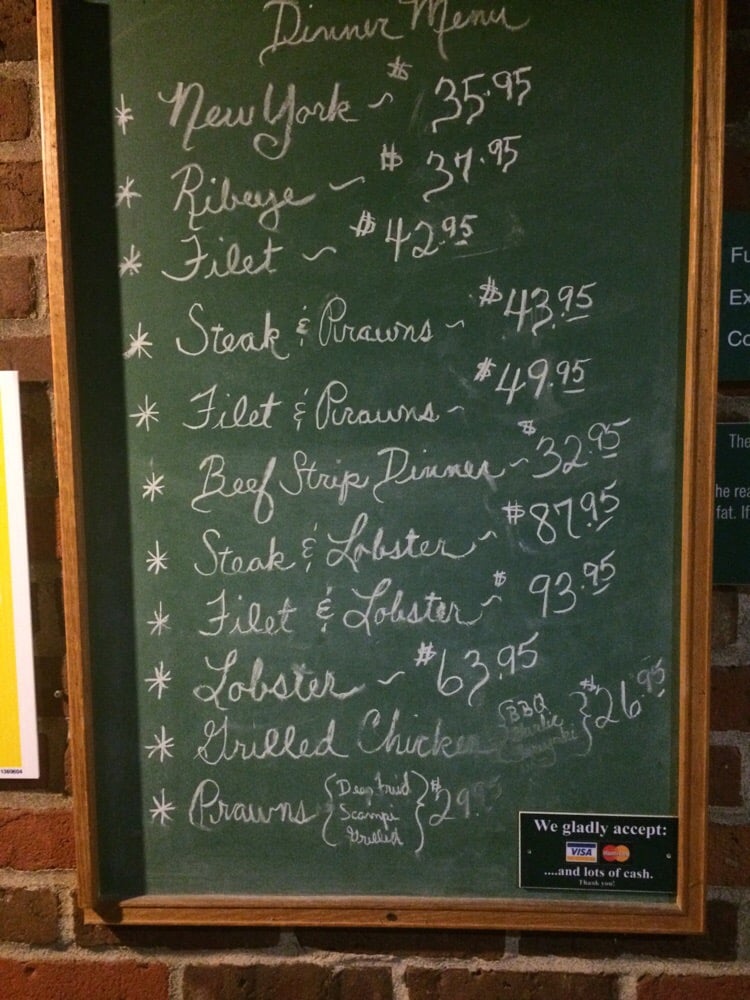 Dinner Menu
* New York ~ $35.95
* Ribeye ~ $37.95
* Filet ~ $42.95
* Steak & Prawns ~ $43.95
* Filet & Prawns ~ $49.95
* Beef Strip Dinner ~ $32.95
* Steak & Lobster ~ $87.95
* Filet & Lobster ~ $93.95
* Lobster ~ $63.95
* Grilled Chicken {BBQ Garlic Teriyaki} $26.95
* Prawns {Deep Fried Scampi Grilled} $29.95
We gladly accept:
VISA MasterCard
....and lots of cash.
Thank you!
Fu
Ex
Co
The
he rea
fat. If
1389604